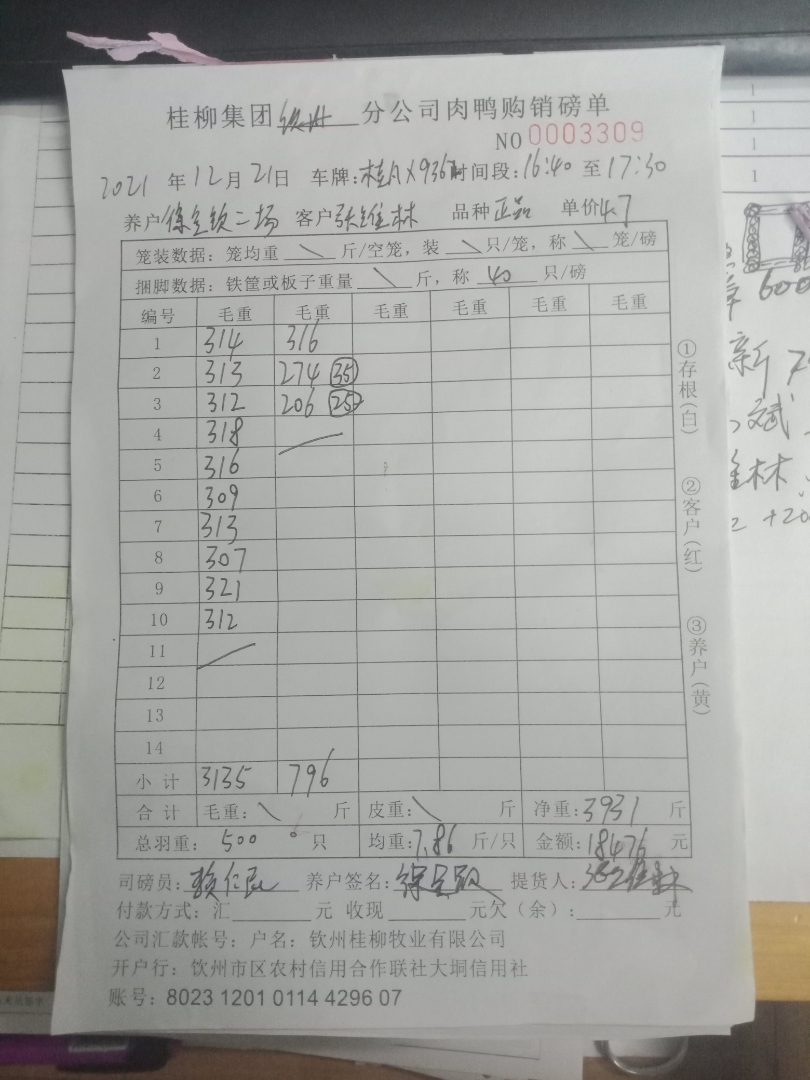 桂柳集团钦州分公司肉鸭购销磅单
NO 0003309
2021年12月21日 车牌:桂AX936 时间段:16:40至17:30
养户 二场 客户 张维林 品种 正品 单价 4.7
笼装数据: 笼均重 \ 斤/空笼, 装 \ 只/笼, 称 \ 笼/磅
捆脚数据: 铁筐或板子重量 \ 斤, 称 40 只/磅
编号 毛重 毛重 毛重 毛重 毛重 毛重
1 314 316
2 313 274 (35)
3 312 206 (25)
4 318
5 316
6 309
7 313
8 307
9 321
10 312
11
12
13
14
小计 3135 796
合计 毛重: \ 斤 皮重: \ 斤 净重: 3931 斤
总羽重: 500 只 均重: 7.86 斤/只 金额: 18476 元
司磅员: 养户签名: 提货人: 张维林
付款方式: 汇 元 收现 元欠(余): 元
公司汇款帐号: 户名: 钦州桂柳牧业有限公司
开户行: 饮州市区农村信用合作联社大垌信用社
账号: 8023 1201 0114 4296 07
①存根(白)
②客户(红)
③养户(黄)
600
新
斌
林
+20